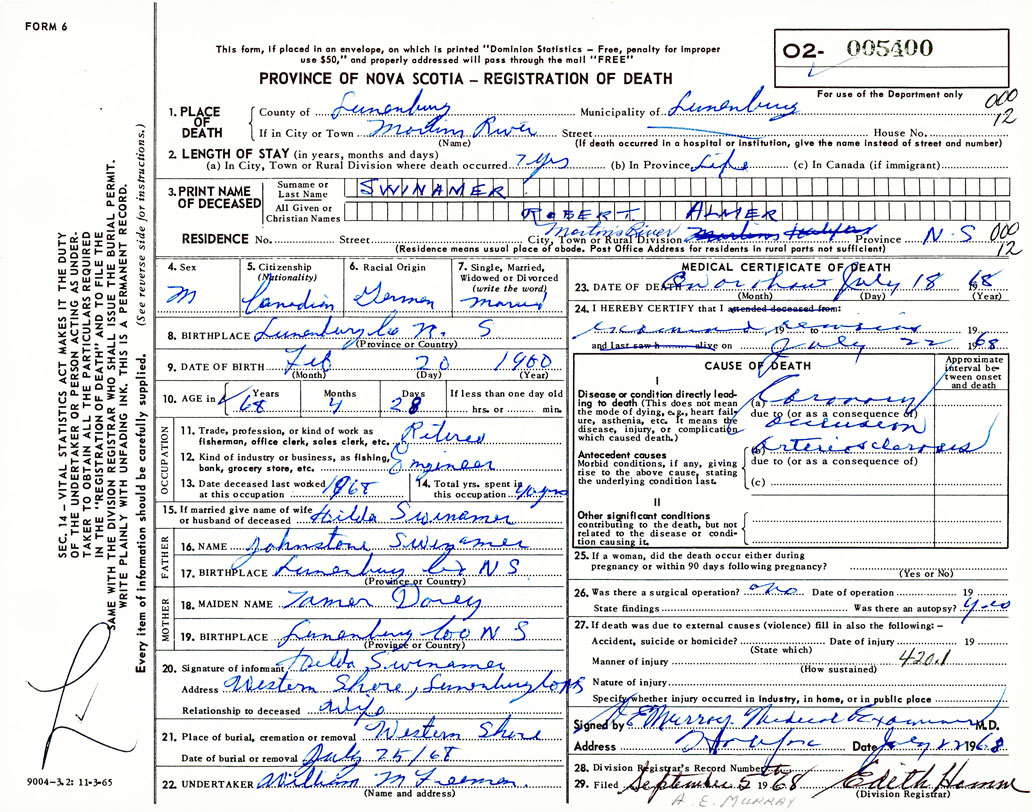 FORM 6
This form, if placed in an envelope, on which is printed "Dominion Statistics – Free, penalty for improper
use $50," and properly addressed will pass through the mail "FREE"
PROVINCE OF NOVA SCOTIA – REGISTRATION OF DEATH
O2- 005400
For use of the Department only
000
12
1. PLACE OF DEATH
County of Lunenburg Municipality of Lunenburg
If in City or Town Martins River Street House No.
(Name) (If death occurred in a hospital or institution, give the name instead of street and number)
2. LENGTH OF STAY (in years, months and days)
(a) In City, Town or Rural Division where death occurred 7 yrs (b) In Province Life (c) In Canada (if immigrant)
3. PRINT NAME OF DECEASED
Surname or Last Name SWINAMER
All Given or Christian Names ROBERT ALMER
Martin's River
RESIDENCE No. Street City, Town or Rural Division Martins Halifax Province N S 000
12
(Residence means usual place of abode. Post Office Address for residents in rural parts not sufficient)
4. Sex
M
5. Citizenship (Nationality)
Canadian
6. Racial Origin
German
7. Single, Married, Widowed or Divorced (write the word)
married
8. BIRTHPLACE Lunenburg Co N. S
(Province or Country)
9. DATE OF BIRTH Feb 20 1900
(Month) (Day) (Year)
10. AGE in
Years 68
Months 4
Days 28
If less than one day old
hrs. or min.
OCCUPATION
11. Trade, profession, or kind of work as fisherman, office clerk, sales clerk, etc. Retired
12. Kind of industry or business, as fishing, bank, grocery store, etc. Engineer
13. Date deceased last worked at this occupation 1968
14. Total yrs. spent in this occupation 40 yrs
15. If married give name of wife or husband of deceased Hilda Swinamer
FATHER
16. NAME Johnstone Swinamer
17. BIRTHPLACE Lunenburg Co N S
(Province or Country)
MOTHER
18. MAIDEN NAME Tamer Dorey
19. BIRTHPLACE Lunenburg Co N S
(Province or Country)
20. Signature of informant Hilda Swinamer
Address Western Shore, Lunenburg Co NS
Relationship to deceased wife
21. Place of burial, cremation or removal Western Shore
Date of burial or removal July 25/68
22. UNDERTAKER William M Freeman
(Name and address)
MEDICAL CERTIFICATE OF DEATH
23. DATE OF DEATH On or about July 18 68
(Month) (Day) (Year)
24. I HEREBY CERTIFY that I attended deceased from:
examined remains 19 to 19
and last saw h alive on July 22 1968
CAUSE OF DEATH
Approximate interval between onset and death
I
Disease or condition directly leading to death (This does not mean the mode of dying, e.g., heart failure, asthenia, etc. It means the disease, injury, or complication which caused death.)
(a) Coronary
due to (or as a consequence of)
occlusion
Antecedent causes
Morbid conditions, if any, giving rise to the above cause, stating the underlying condition last.
(b) Arteriosclerosis
due to (or as a consequence of)
(c)
II
Other significant conditions contributing to the death, but not related to the disease or condition causing it.
25. If a woman, did the death occur either during
pregnancy or within 90 days following pregnancy?
(Yes or No)
26. Was there a surgical operation? no Date of operation 19
State findings Was there an autopsy? yes
27. If death was due to external causes (violence) fill in also the following: –
Accident, suicide or homicide? Date of injury 19
(State which)
Manner of injury 420.1
(How sustained)
Nature of injury
Specify whether injury occurred in Industry, in home, or in public place
Signed by A E Murray Medical Examiner M.D.
Address Date July 22 1968
28. Division Registrar's Record Number
29. Filed September 5 1968 Edith
(Division Registrar)
A. E. MURRAY
SEC. 14 – VITAL STATISTICS ACT MAKES IT THE DUTY
OF THE UNDERTAKER OR PERSON ACTING AS UNDER-
TAKER TO OBTAIN ALL THE PARTICULARS REQUIRED
IN THE "REGISTRATION OF DEATH" AND TO FILE THE
SAME WITH THE DIVISION REGISTRAR WHO SHALL ISSUE THE BURIAL PERMIT.
WRITE PLAINLY WITH UNFADING INK. THIS IS A PERMANENT RECORD.
Every item of information should be carefully supplied. (See reverse side for instructions.)
9004-3.2: 11-3-65